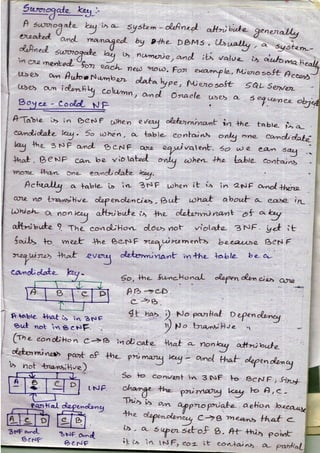 Surrogate key :-
A surrogate key is a system-defined attribute generally
created and managed by the DBMS. Usually, a system-
defined surrogate key is numeric, and its value is automatically
incremented for each new row. For example, Microsoft Access
uses an AutoNumber data type, Microsoft SQL Server
uses an identity column, and Oracle uses a sequence object
Boyce-Codd NF
A Table is in BCNF when every determinant in the table is a
candidate key. So when, a table contains only one candidate
key the 3NF and BCNF are equivalent. So we can say
that, BCNF can be violated only when the table contains
more than one candidate key.
Actually a table is in 3NF when it is in 2NF and there
are no transitive dependencies. But what about a case in
which a non key attribute is the determinant of a key
attribute? The condition does not violate 3NF. yet it
fails to meet the BCNF requirements because BCNF
requires that every determinant in the table be a
candidate key.
So, the functional dependencies are
A B C D
AB → CD
C → B
A table that is in 3NF
but not in BCNF
It has i) No partial Dependency
ii) No transitive "
(The condition C→B indicate that a nonkey attribute
determines part of the primary key - and that dependency
is not transitive)
A C B D 1NF
Partial dependency
So to convert in 3NF to BCNF, first
change the primary key to A,C.
This is an appropriate action because
the dependency C→B means that C
is a super set of B. At this point
it is in 1NF, coz it contains a partial
A C D
C B
3NF and
BCNF
3NF and
BCNF